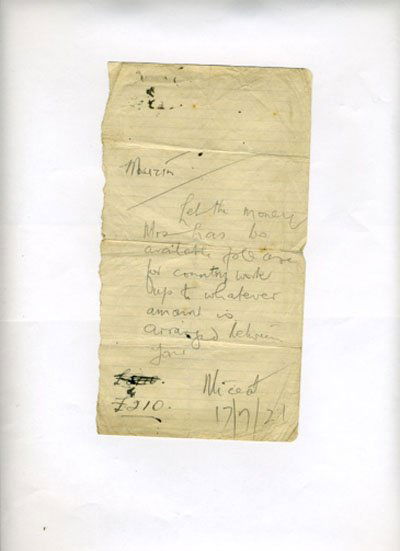 Let the money
Mrs L has be
available
for country work
up to whatever
amount is
arranged between
you
Miceál
17/7/21
£210.